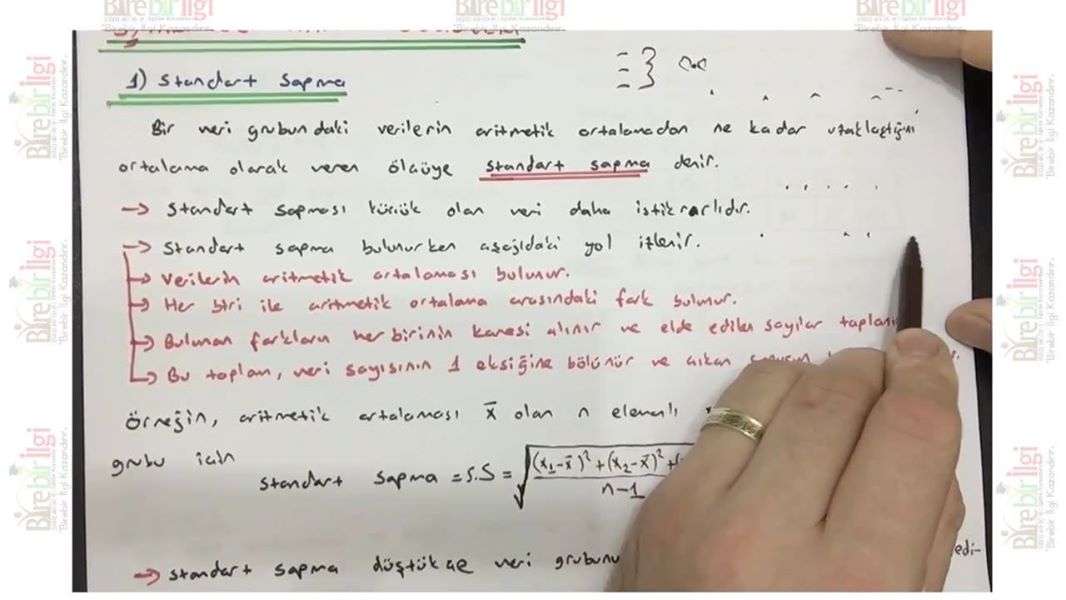 1) Standart Sapma
Bir veri grubundaki verilerin aritmetik ortalamadan ne kadar uzaklaştığını
ortalama olarak veren ölçüye standart sapma denir.
→ Standart sapması küçük olan veri daha istikrarlıdır.
→ Standart sapma bulunurken aşağıdaki yol izlenir.
→ Verilerin aritmetik ortalaması bulunur.
→ Her biri ile aritmetik ortalama arasındaki fark bulunur.
→ Bulunan farkların her birinin karesi alınır ve elde edilen sayılar toplanı
→ Bu toplam, veri sayısının 1 eksiğine bölünür ve çıkan
Örneğin, aritmetik ortalaması x̄ olan n elemanlı
grubu için
standart sapma = S.S = √((x₁-x̄)²+(x₂-x̄)²+ / n-1
→ standart sapma düştükçe veri grubunu
edi-
Birebir İlgi
"Birebir İlgi Kazandırır."